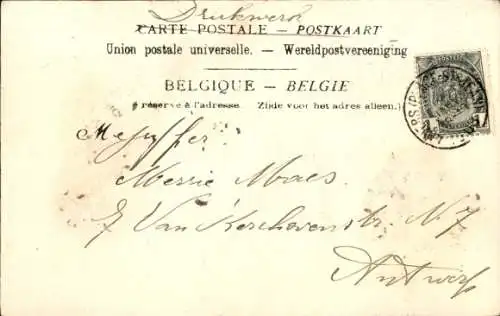 Drukwerk
CARTE POSTALE – POSTKAART
Union postale universelle. — Wereldpostvereeniging
BELGIQUE – BELGIE
réservé à l'adresse. Zijde voor het adres alleen.)
Mejuffer:
Merrie Maes
Van Kerchovenstr. N 7
Antwerp